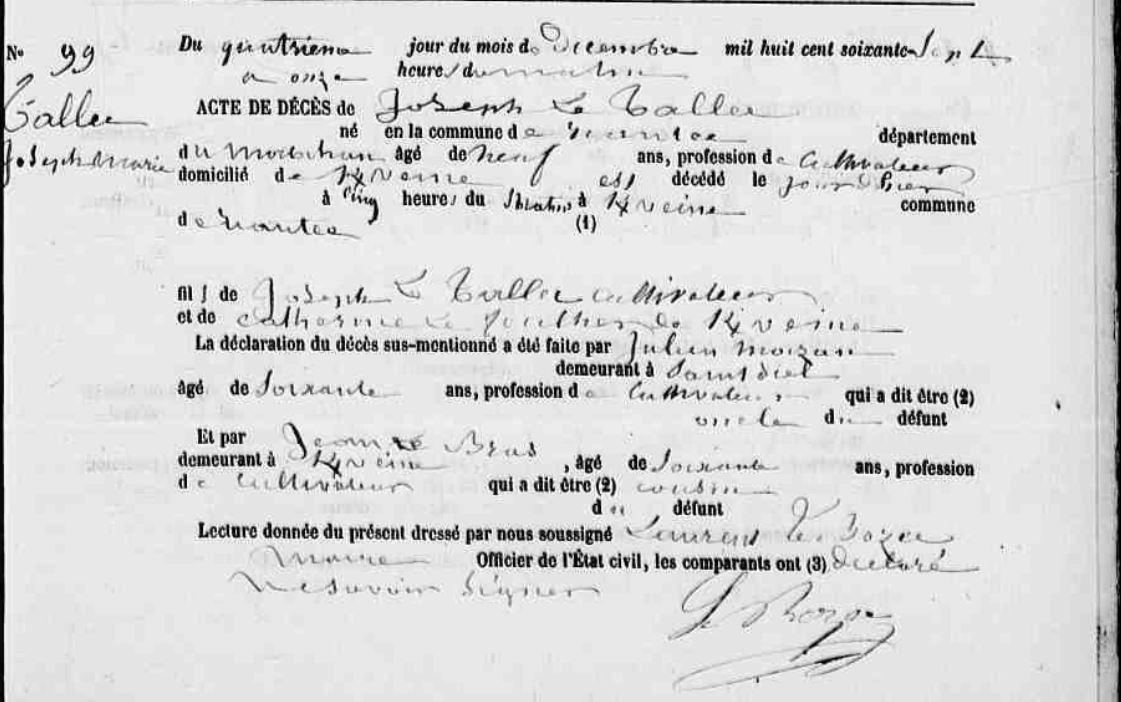 No 99
Tallec
Joseph Marie
Du quatrieme jour du mois de Decembre mil huit cent soixante Sept
a onze heures du matin
ACTE DE DÉCÈS de Joseph Le Tallec
né en la commune de département
du Morbihan âgé de neuf ans, profession de Cultivateur
domicilié de Kveine est décédé le jour d'hier
à cinq heures du à Kveine commune
de (1)
fils de Joseph Le Tallec cultivateur
et de Catherine Le de Kveine
La déclaration du décès sus-mentionné a été faite par Julien Moizan
demeurant à
âgé de Soixante ans, profession de Cultivateur qui a dit être (2)
oncle du défunt
Et par Jean Le Bras
demeurant à Kveine, âgé de Soixante ans, profession
de Cultivateur qui a dit être (2) cousin
du défunt
Lecture donnée du présent dressé par nous soussigné Laurent Le
Maire Officier de l'État civil, les comparants ont (3) declaré
ne savoir signer